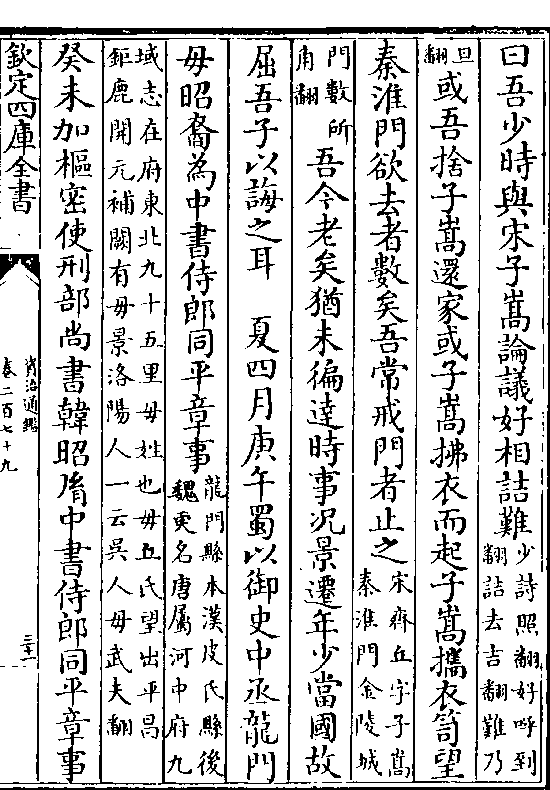 曰吾少時與宋子嵩論議好相詰難少詩照翻好呼到翻詰去吉翻難乃
旦翻或吾捨子嵩還家或子嵩拂衣而起子嵩攜衣笥望
秦淮門欲去者數矣吾常戒門者止之宋齊丘字子嵩秦淮門金陵城
門數所角翻吾今老矣猶未徧達時事况景遷年少當國故
屈吾子以誨之耳 夏四月庚午蜀以御史中丞龍門
毋昭裔為中書侍郎同平章事龍門縣本漢皮氏縣後魏更名唐屬河中府九
域志在府東北九十五里毋姓也毋丘氏望出平昌鉅鹿開元補闕有毋景洛陽人一云吳人毋武夫翻
癸未加樞密使刑部尚書韓昭𦙍中書侍郎同平章事
欽定四庫全書
資治通鑑
卷二百七十九
三十一